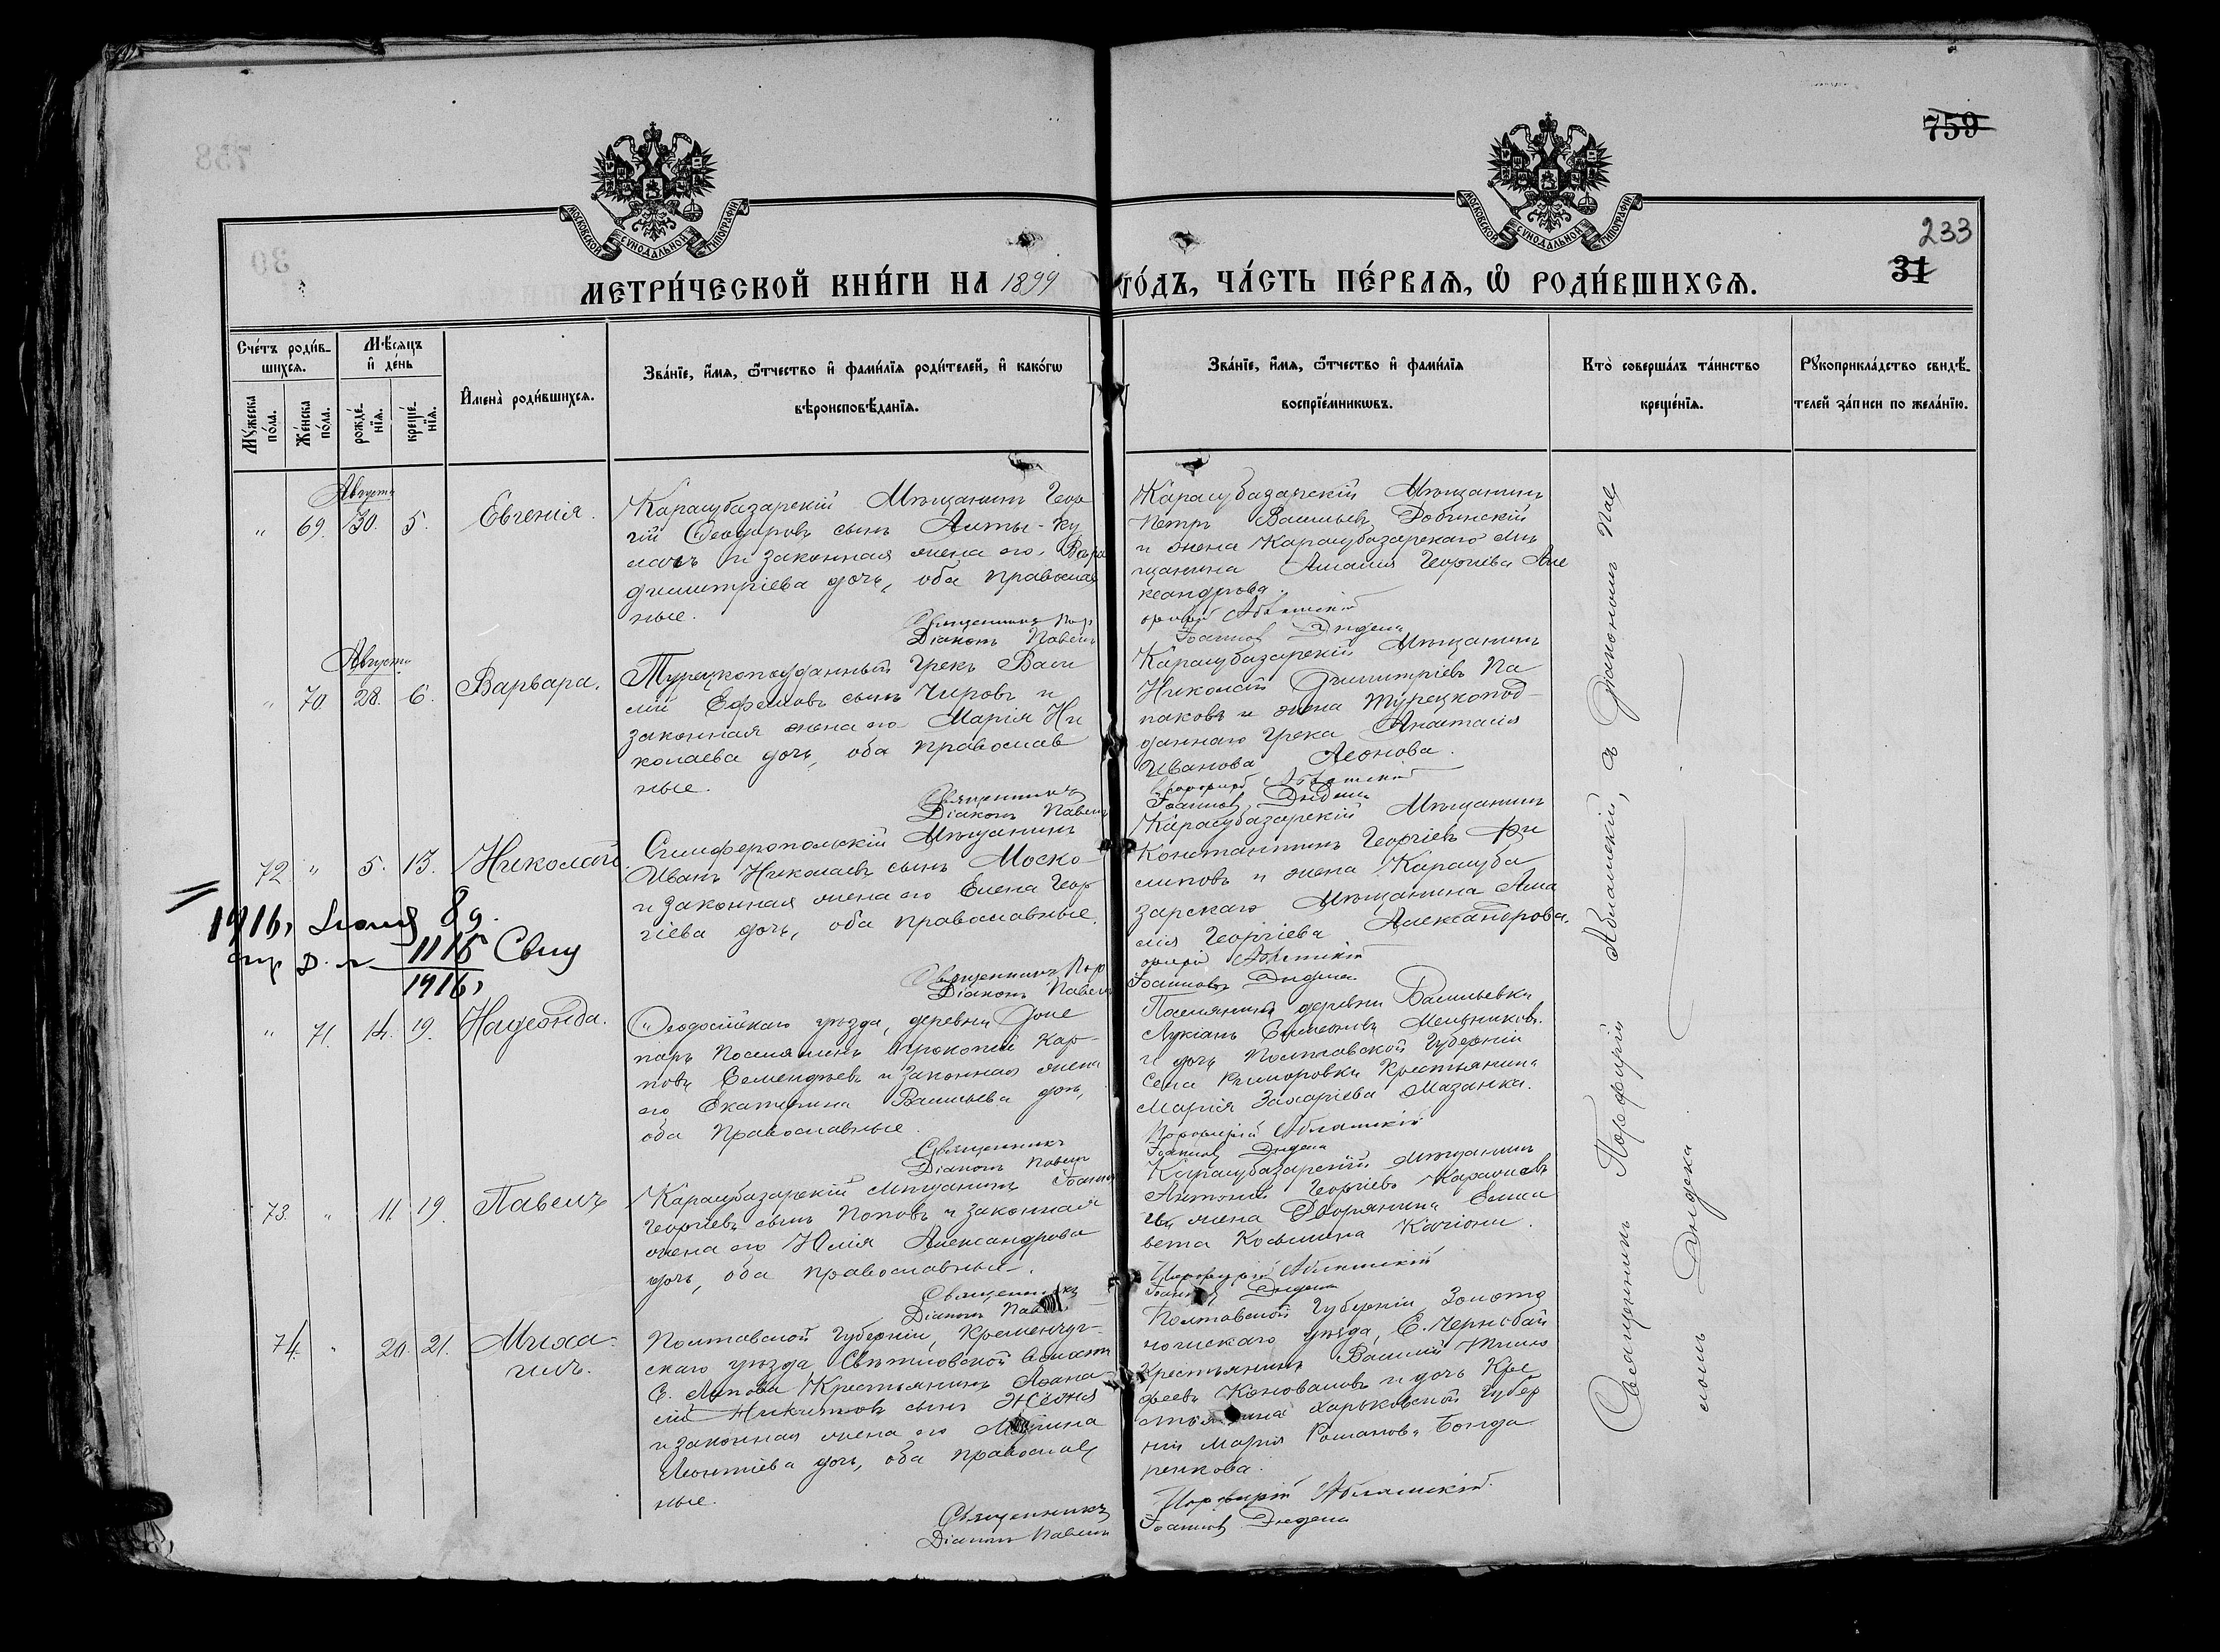 759
233
31
МОСКОВСКОЙ СѴНОДАЛЬНОЙ ТИПОГРАФІИ
МОСКОВСКОЙ СѴНОДАЛЬНОЙ ТИПОГРАФІИ
МЕТРИ́ЧЕСКОЙ КНИ́ГИ НА 1899 ГО́ДЪ, ЧА́СТЬ ПЕ́РВАѦ, Ѡ҆ РОДИ́ВШИХСѦ.
Сче́тъ роди́в-
шихсѧ.
Мꙋ́жеска по́ла.
Же́нска по́ла.
Мѣ́сѧцъ и҆ де́нь
рожде́-нїѧ.
креще́-нїѧ.
И҆мена̀ роди́вшихсѧ.
Зва́нїе, и҆́мѧ, ѻ҆́тчество и҆ фами́лїѧ роди́телей, и҆ како́гѡ
вѣроисповѣ́данїѧ.
Зва́нїе, и҆́мѧ, ѻ҆́тчество и҆ фами́лїѧ
воспрїе́мникѡвъ.
Кто̀ соверша́лъ та́инство
креще́нїѧ.
Рꙋкоприкла́дство свидѣ́-
телей за́писи по жела́нїю.
Августъ
" 69. 30. 5. Евгенія.
Карасубазарскій Мѣщанинъ Геор
гій Ѳеодоровъ сынъ Алты-Ку
лачъ и законная жена его, Вар
Димитріева дочь, оба православ
ные.
Священникъ Пор
Діаконъ Павелъ
Карасубазарскій Мѣщанинъ
Петръ Васильевъ
и жена Карасубазарскаго Мѣ
щанина Амалія Георгіева Але
ксандрова.
Аблямскій
Іоанновъ Дидена
Августъ
" 70. 28. 6. Варвара.
Турецкоподданный Грекъ Васи
лій Ефремовъ сынъ Чировъ и
законная жена его Марія Ни
колаева дочь, оба православ
ные.
Священникъ
Діаконъ Павелъ
Карасубазарскій Мѣщанинъ
Николай Димитріевъ Па
паковъ и жена Турецкопод-
даннаго Грека Анастасія
Иванова Леонова.
Порфирій Аблямскій
Іоанновъ Дидена
72. " 5. 13. Николай.
Симферопольскій Мѣщанинъ
Иванъ Николаевъ сынъ Моско
и законная жена его Елена Геор
гіева дочь, оба православные.
Священникъ Пор
Діаконъ Павелъ
Карасубазарскій Мѣщанинъ
Константинъ Георгіевъ Фи
липовъ и жена Карасуба
зарскаго Мѣщанина Ама
лія Георгіева Александрова.
фирій Аблямскій
Іоанновъ Дидена
1916, Іюля 8 д.
1115
1916,
" 71. 14. 19. Надежда.
Ѳеодосійскаго уѣзда, деревни
Поселянинъ Прокопій Кар-
повъ Семенджевъ и законная жена
его Екатерина Васильева дочь,
оба Православные.
Священникъ
Діаконъ Павелъ
Поселянинъ деревни Васильевки
Лукіанъ Симеоновъ Мельниковъ
и дочь Полтавской Губерніи
Села Климовки Крестьянина
Марія Захаріева Мазанка.
Порфирій Аблямскій
Іоанновъ Дидена
73. " 11. 19. Павелъ
Карасубазарскій Мѣщанинъ Іоаннъ
Георгіевъ сынъ Поповъ и законная
жена его Юлія Александрова
дочь, оба православные.
Священникъ
Діаконъ Павелъ
Карасубазарскій Мѣщанинъ
Антоній Георгіевъ
и жена Дворянина Елиса
вета Космина Качіони.
Порфирій Аблямскій
Іоанновъ Дидена
74. " 20. 21. Миха-
илъ.
Полтавской Губерніи, Кременчуг-
скаго уѣзда Святиловской волости
С. Липова Крестьянинъ Аѳана
сій Никитовъ сынъ
и законная жена его Марина
Леонтіева дочь, оба православ
ные.
Священникъ
Діаконъ Павелъ
Полтавской Губерніи, Золото
ношскаго уѣзда, С. Чернобай
Крестьянинъ Василій Тимо
феевъ Коноваловъ и дочь Кре
стьянина Харьковской Губер
ніи Марія Романова Бонда
ренкова.
Порфирій Аблямскій.
Іоанновъ Дидена
Священникъ Порфирій Аблямскій, съ Діакономъ Пав
ломъ Дидена